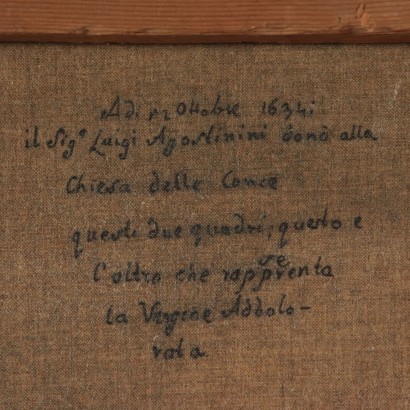 Adi 12 Ottobre 1634:
il Sig.e Luigi Agostinini donò alla
Chiesa delle Conce
questi due quadri, questo e
l'altro che rappresenta
la Vergine Addolo-
rata